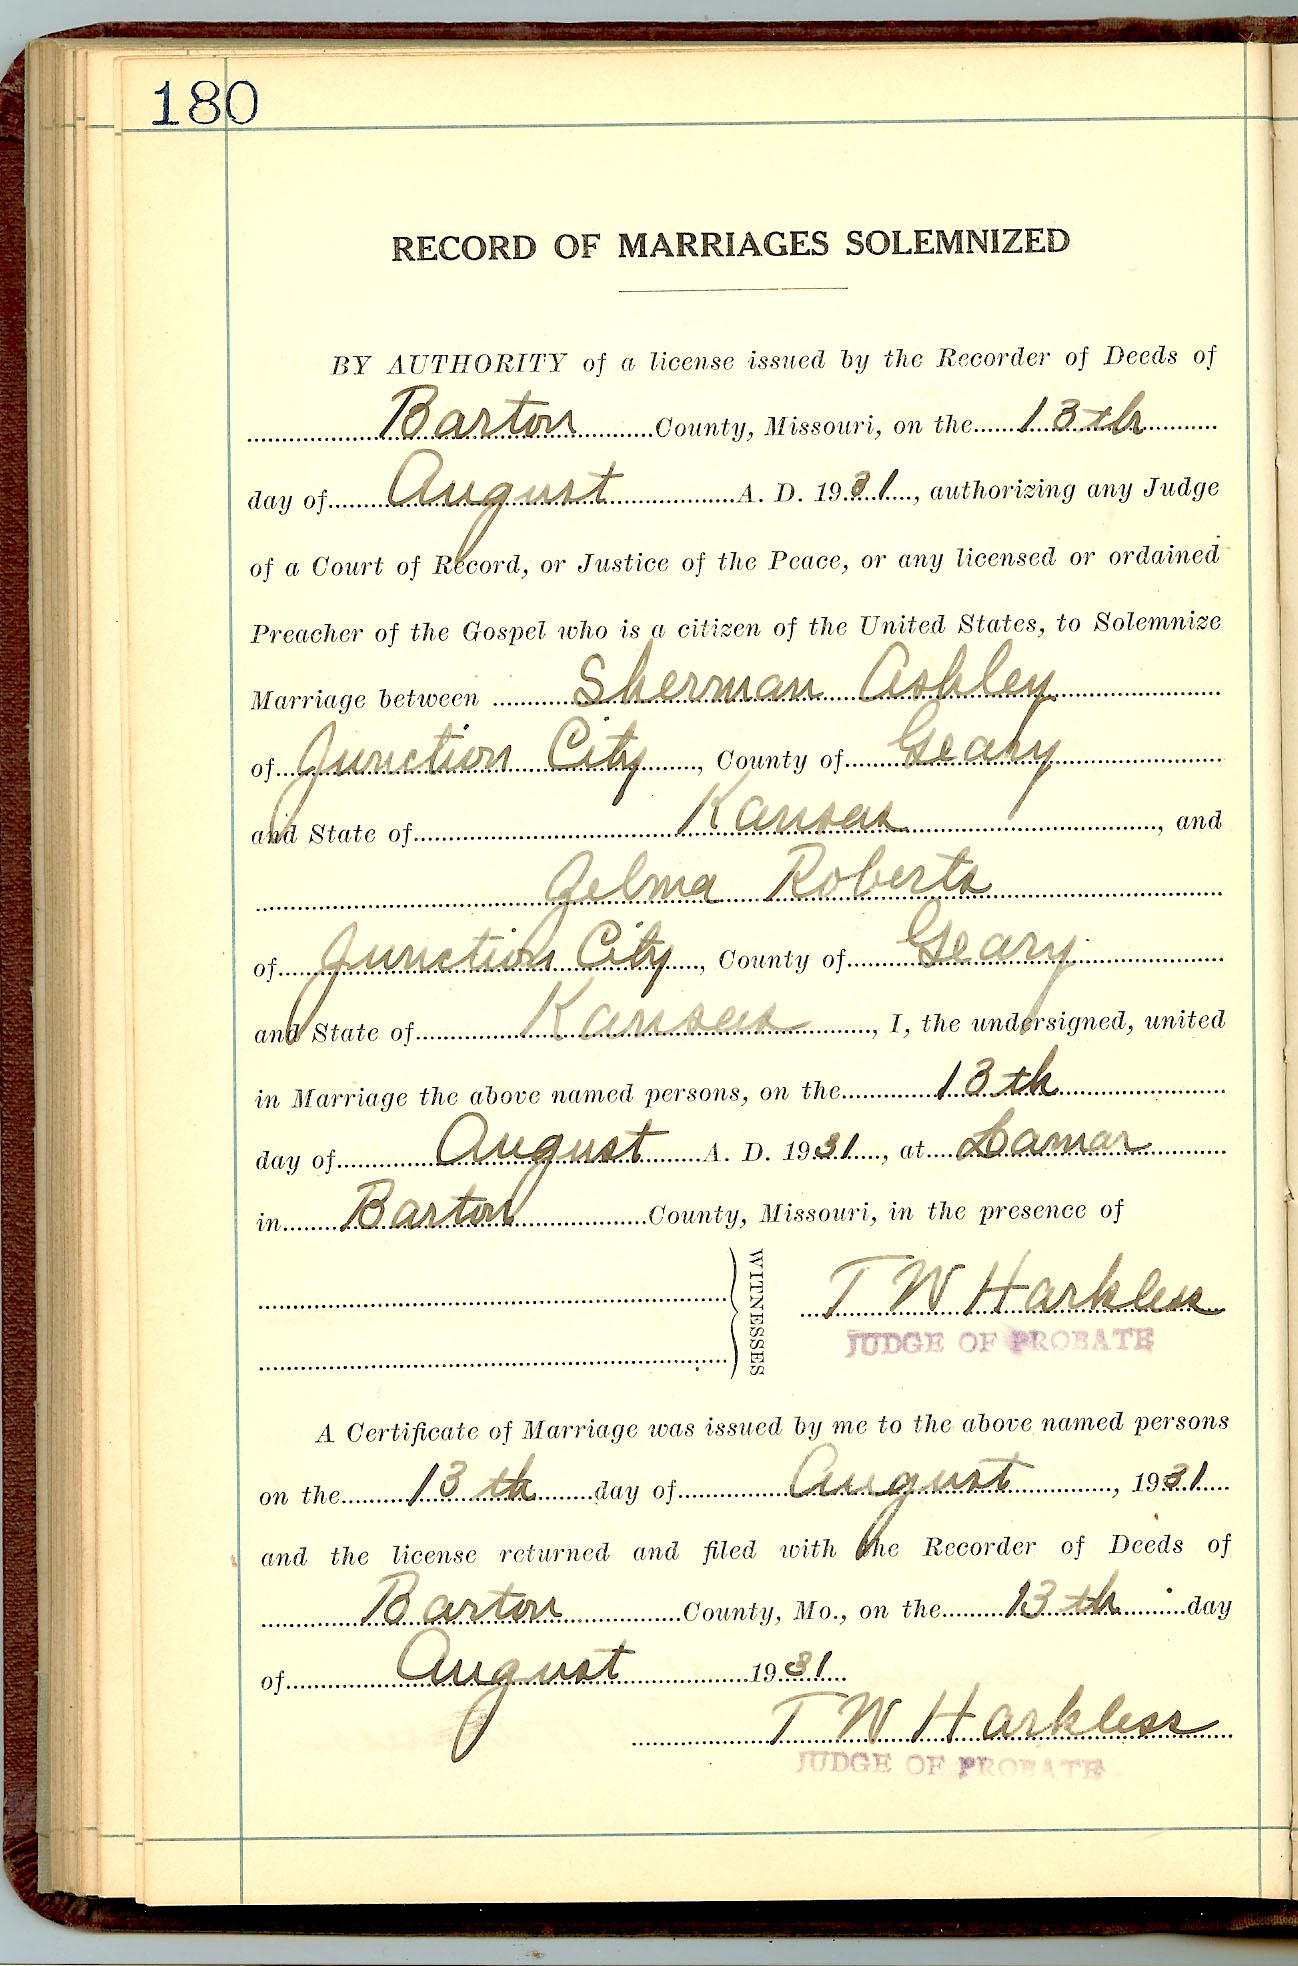 180
RECORD OF MARRIAGES SOLEMNIZED
BY AUTHORITY of a license issued by the Recorder of Deeds of
Barton County, Missouri, on the 13th
day of August A. D. 1931, authorizing any Judge
of a Court of Record, or Justice of the Peace, or any licensed or ordained
Preacher of the Gospel who is a citizen of the United States, to Solemnize
Marriage between Sherman Ashley
of Junction City, County of Geary
and State of Kansas, and
Zelma Roberts
of Junction City, County of Geary
and State of Kansas, I, the undersigned, united
in Marriage the above named persons, on the 13th
day of August A. D. 1931, at Lamar
in Barton County, Missouri, in the presence of
WITNESSES
T W Harkless
JUDGE OF PROBATE
A Certificate of Marriage was issued by me to the above named persons
on the 13th day of August, 1931
and the license returned and filed with the Recorder of Deeds of
Barton County, Mo., on the 13th day
of August 1931
T W Harkless
JUDGE OF PROBATE